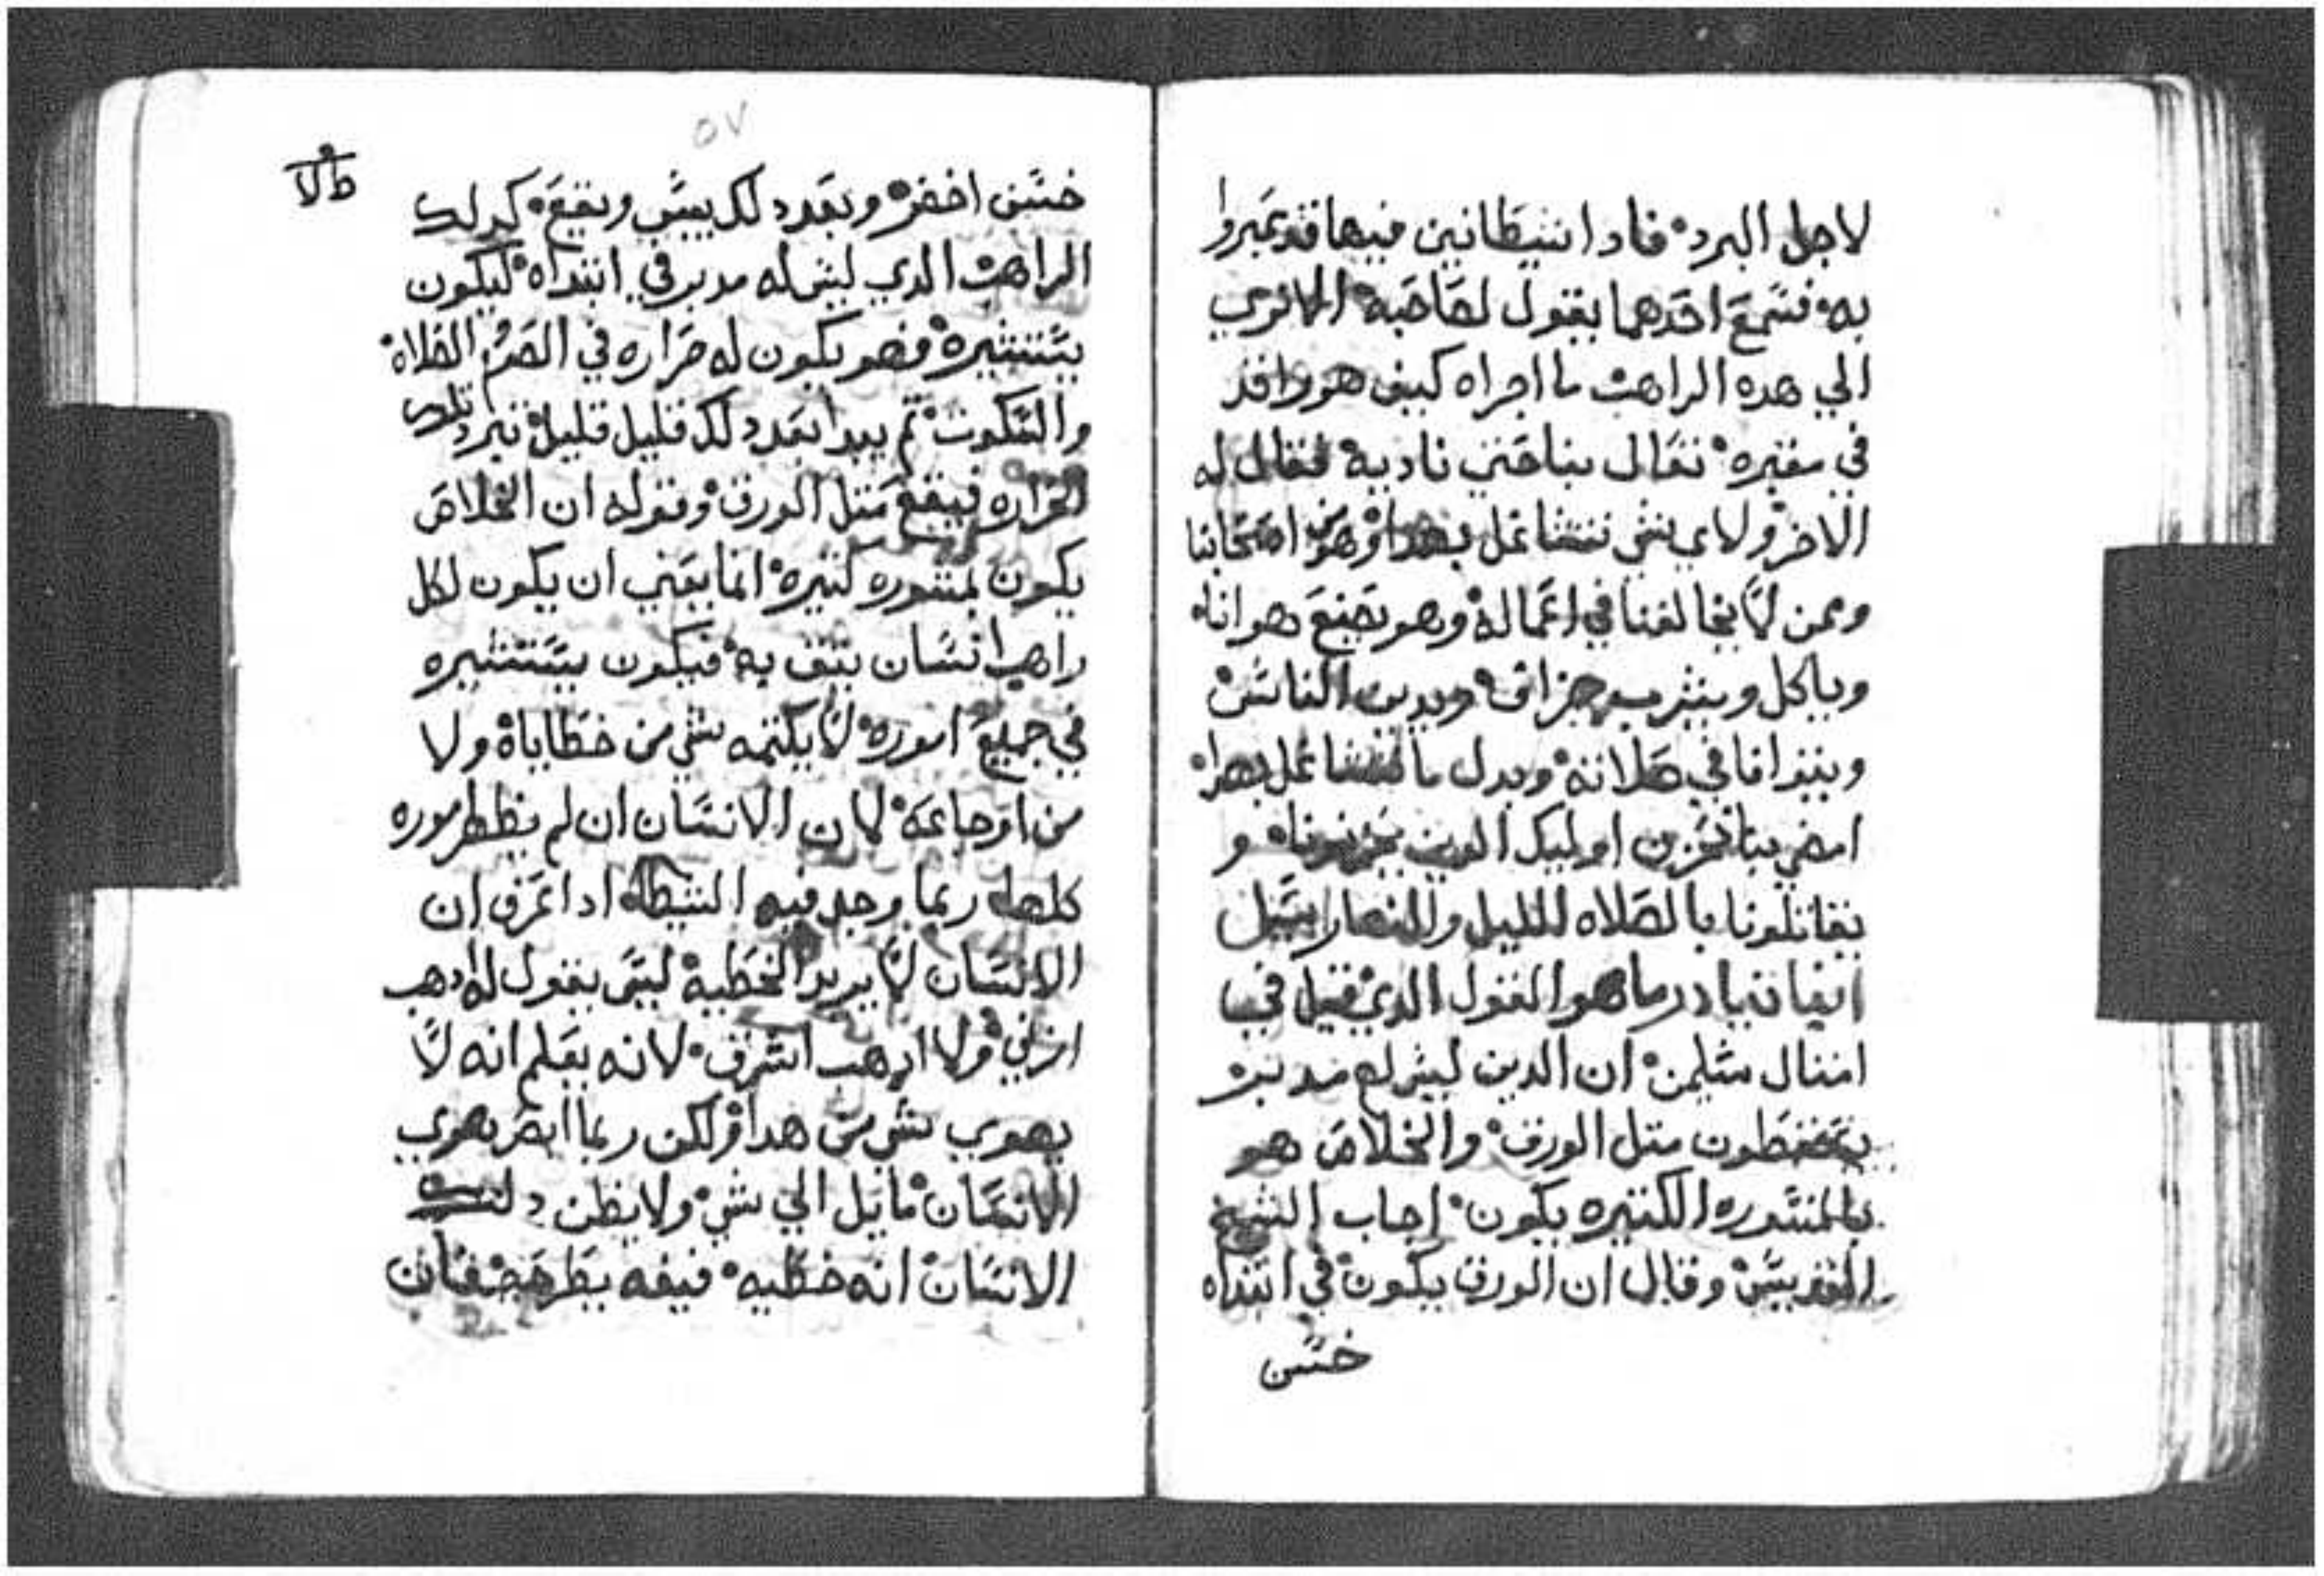 لاجل البرد فادا شيطانين فيها قد عبروا
به فسمع احدهما يقول لصاحبه الا تري
الي هده الراهب ما اجراه كيف هو راقد
في مقبره فقال بناحني فقال له
الاخر ولاي شي نتشاغل بهدا وهو من اصحابنا
وممن لا يخالفنا في اعماله وهو يصنع هوانا
وياكل ويشرب جزاف ويدين الناس
ويتوانا في صلاته وبدل ما نتشاغل بهدا
امضي بنا نحزن اوليك الدين يحزنونا و
يقاتلونا بالصلاه الليل والنهار
ما هو القول الدي قيل في
امثال سليمن ان الدين ليس لهم مدبر
يسقطون متل الورق والخلاص هو
بالمشوره الكتيره يكون اجاب الشيخ
القديس وقال ان الورق يكون في ابتداه
حسن
٥٧
حسن اخضر وبعد دلك ييبس ويقع كدلك
الراهب الدي ليس له مدبر في ابتداه ليكون
يستشيره فهو يكون له حراره في الصوم الصلاه
والسكوت تم يبدا بعد دلك قليل قليل تبرد تلك
الحراره فيقع متل الورق وقوله ان الخلاص
يكون بمشوره كتيره انما يعني ان يكون لكل
راهب انسان يتق به فيكون يستشيره
في جميع اموره لا يكتمه شي من خطاياه ولا
من اوجاعه لان الانسان ان لم يظهر اموره
كلها ربما وجد فيه الشيطان ادا عرف ان
الانسان لا يريد الخطيه ليس يقول له ادهب
ازني ولا ادهب اسرق لانه يعلم انه لا
يهوي شي من هدا ولكن ربما ابصر يهوي
الانسان مايل الي شي ولا يظن دلك
الانسان انه خطيه فيفه